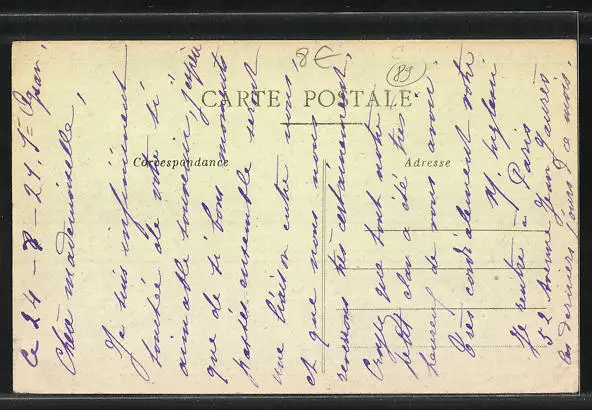 8€
89
CARTE POSTALE
Correspondance
Adresse
Ce 24 - 8 - 24,
Chère mademoiselle,
Je suis infiniment
touchée de votre si
aimable souvenir, j'espère
que de si bons moments
passés ensemble seront
une liaison entre nous
et que nous nous
reverrons très certainement.
Croyez que tout notre
petit clan a été très
heureux de vous avoir.
Très cordialement votre
Je rentre à Paris
52 avenue Jean Jaurès
les derniers jours du mois.